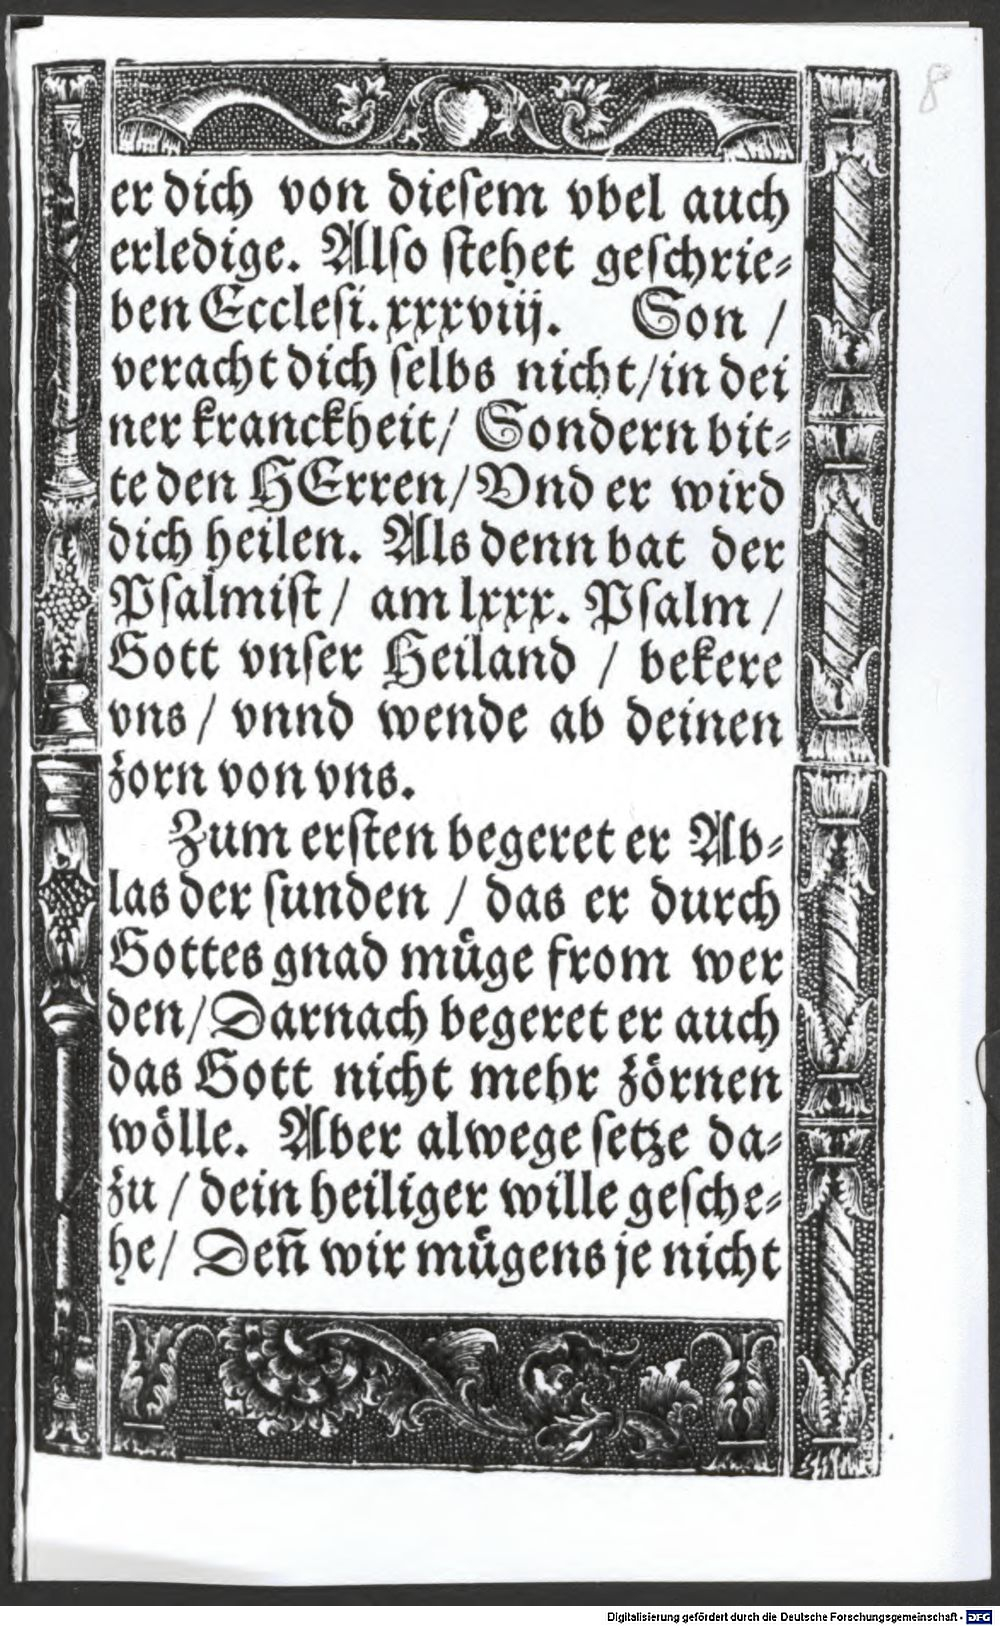 8
er dich von dieſem vbel auch
erledige. Alſo ſtehet geſchrie⸗
ben Eccleſi. xxxviij. Son /
veracht dich ſelbs nicht/in dei
ner kranckheit/ Sondern bit⸗
te den HErren/Vnd er wird
dich heilen. Als denn bat der
Pſalmiſt / am lxxx. Pſalm /
Gott vnſer Heiland / bekere
vns / vnnd wende ab deinen
zorn von vns.
Zum erſten begeret er Ab⸗
las der ſunden / das er durch
Gottes gnad muͤge from wer
den/Darnach begeret er auch
das Gott nicht mehr zoͤrnen
woͤlle. Aber alwege ſetze da⸗
zu / dein heiliger wille geſche⸗
he/ Den̄ wir muͤgens je nicht
Digitalisierung gefördert durch die Deutsche Forschungsgemeinschaft - DFG